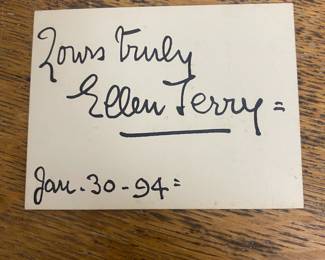 Yours truly
Ellen Terry =
Jan. 30 - 94 =